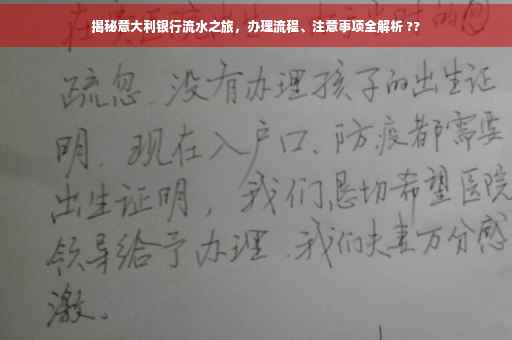 揭秘意大利银行流水之旅，办理流程、注意事项全解析 ??
疏忽，没有办理孩子的出生证
明，现在入户口、防疫都需要
出生证明，我们恳切希望医院
领导给予办理，我们夫妻万分感
激。